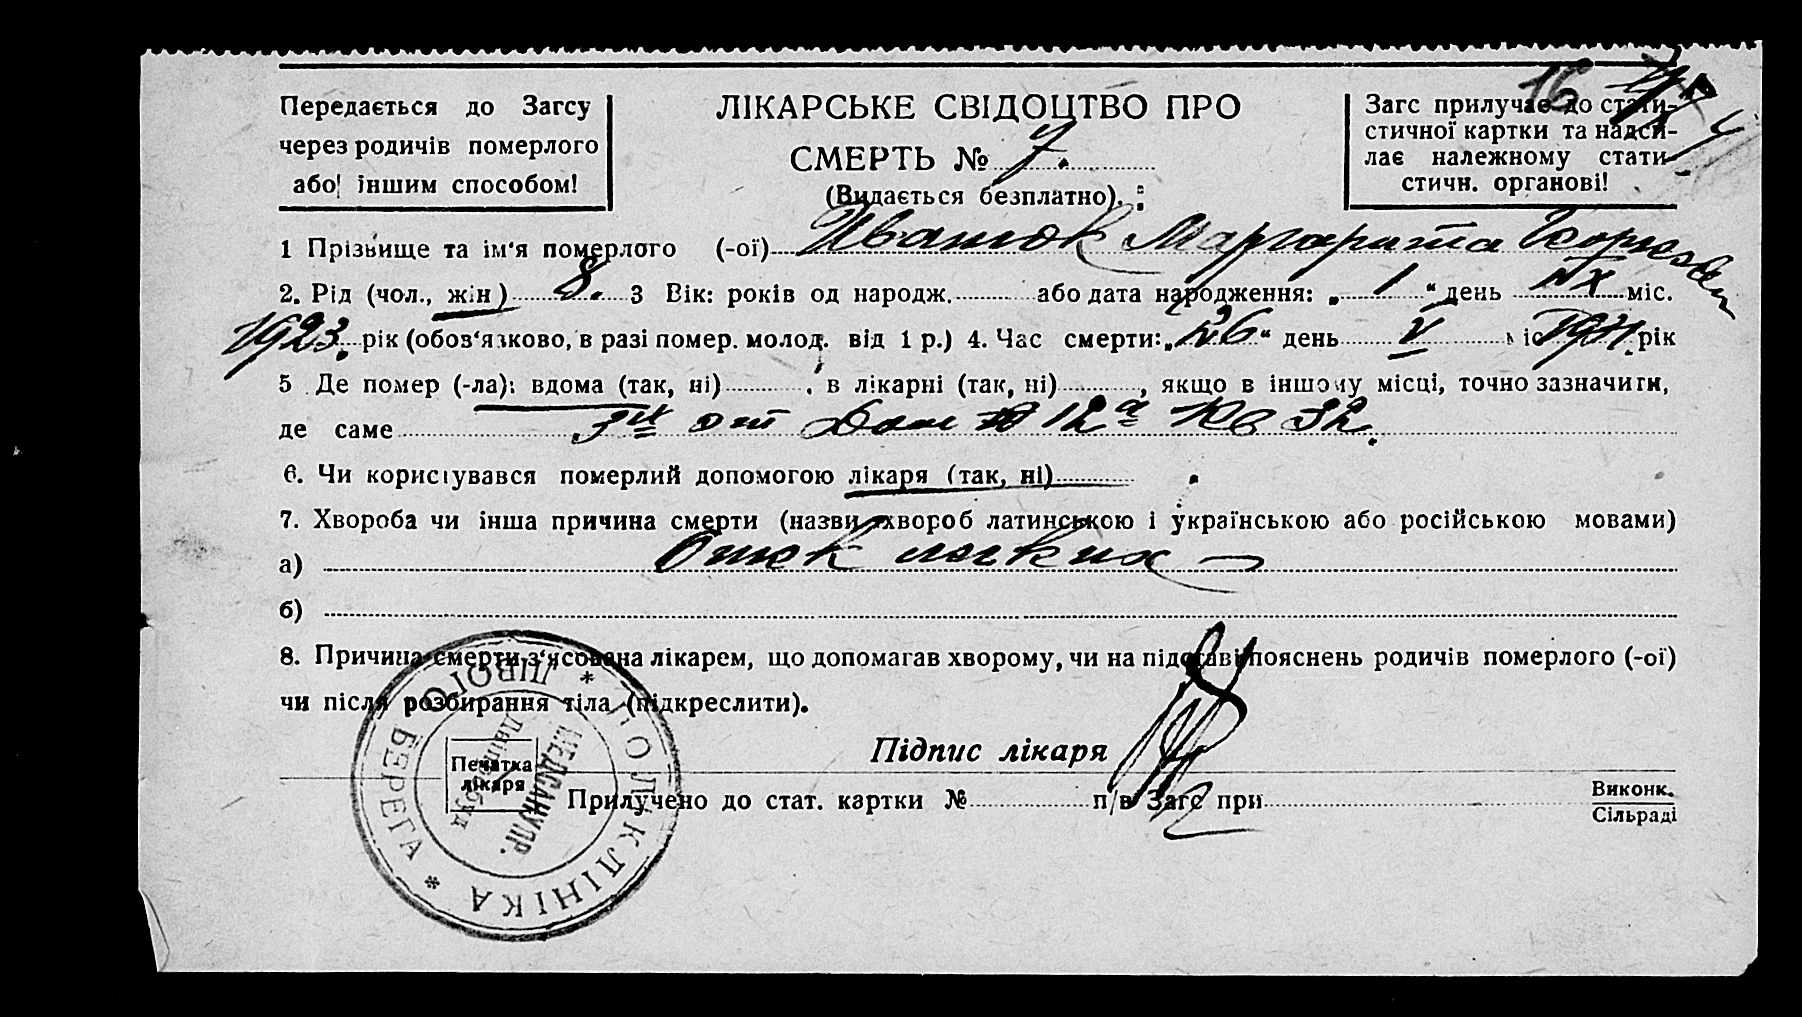 Передається до Загсу
через родичів померлого
або іншим способом!
ЛІКАРСЬКЕ СВІДОЦТВО ПРО
СМЕРТЬ № 7.
(Видається безплатно).
16
Загс прилучає до стати-
стичної картки та надси-
лає належному стати-
стичн. органові!
1 Прізвище та ім'я померлого (-ої) Иванюк Маргарита
2. Рід (чол., жін) 8. 3 Вік: років од народж. або дата народження: „ 1 “ день IX міс.
1923. рік (обов'язково, в разі помер. молод. від 1 р.) 4. Час смерти: „ 26 “ день V міс. рік
5 Де помер (-ла): вдома (так, ні) , в лікарні (так, ні) , якщо в іншому місці, точно зазначити,
де саме 3й Дом 12а Кв 32.
6. Чи користувався померлий допомогою лікаря (так, ні)
7. Хвороба чи інша причина смерти (назви хвороб латинською і українською або російською мовами)
а) Отек легких
б)
8. Причина смерти з'ясована лікарем, що допомагав хворому, чи на підставі пояснень родичів померлого (-ої)
чи після розбирання тіла (підкреслити).
Підпис лікаря
Печатка
лікаря
ПОЛІКЛІНІКА * ЛІВОГО БЕРЕГА *
МЕДСАНУПР.
Дніпробуд
Прилучено до стат. картки № п/в Загс при Виконк.
Сільраді